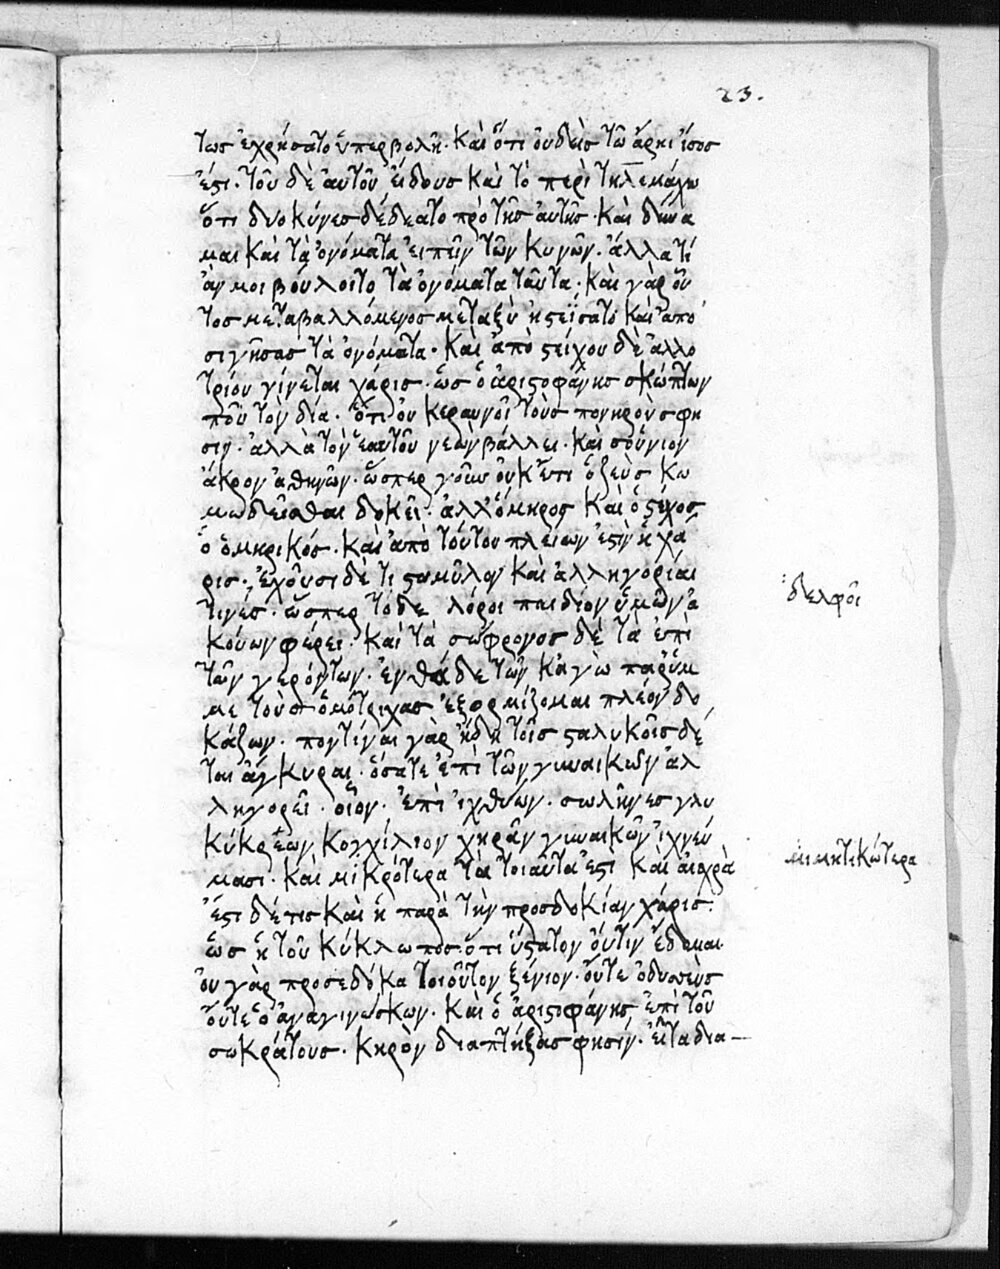 23.
τως ἐχρήσατο ὑπερβολῆ. Καὶ ὅτι οὐδεὶς τῶ ἄρηι ἴσος
ἐστι. τοῦ δὲ αὐτοῦ εἴδους καὶ τὸ περὶ τηλεμάχω
ὅτι δύο κύνες δέδεατο πρὸ τῆς αὐτῆς. Καὶ δύνα
μαι καὶ τὰ ὀνόματα εἰπεῖν τῶν κυνῶν. ἀλλὰ τί
ἄν μοι βούλοιτο τὰ ὀνόματα ταῦτα. καὶ γὰρ οὗ
τος μεταβαλλόμενος μεταξὺ ἠστεΐσατο καὶ ἀπο
σιγῆσας τὰ ὀνόματα. Καὶ ἀπὸ στίχου δὲ ἀλλο
τρίου γίνεται χάρις. ὡς ὁ ἀριστοφάνης σκώπτων
που τὸν δία. ὅτι οὐ κεραυνοῖ τοὺς πονηροὺς φη
σιν. ἀλλὰ τὸν ἑαυτοῦ νεὼν βάλλει. καὶ σούνιον
ἄκρον ἀθηνῶν. ὥσπερ γοῦν οὐκέτι ὁ ζεὺς κω
μωδεῖσθαι δοκεῖ. ἀλλ' ὅμηρος καὶ ὁ στίχος
ὁ ὁμηρικός. καὶ ἀπὸ τούτου πλείων ἐστὶν ἡ χά
ρις. ἔχουσι δέ τι στωμύλον καὶ ἀλληγορίαι
τινές. ὥσπερ τόδε λόροι παιδίον ὑμῶν ἁ
κούων φέρει. καὶ τὰ σώφρονος δὲ τὰ ἐπὶ
τῶν γερόντων. ἐνθάδε τῶν κἀγὼ παρ' ὔμ
με τοὺς ὁμότριχας ἐξορμίζομαι πλέον δο
κάζων. ποντίναι γὰρ ἤδη τοῖς ταλυκοῖς δέ
ται ἄγκυραι. ὅσα τε ἐπὶ τῶν γυναικῶν ἀλ
ληγορεῖ. οἷον. ἐπὶ ἰχθύων. σωλῆνες γλυ
κύκρεων κογχίλιον χηρᾶν γυναικῶν ἰχνεύ
μασι. καὶ μικρότερα τὰ τοιαῦτα ἐστι καὶ αἰσχρὰ
ἔστι δέ τις καὶ ἡ παρὰ τὴν προσδοκίαν χάρις.
ὡς ἡ τοῦ κύκλωπος. ὅτι ὕστατον οὖτιν ἔδομαι
οὐ γὰρ προσεδόκα τοιοῦτον ξένιον. οὔτε ὀδυσσεὺς
οὔτε ὁ ἀναγινώσκων. Καὶ ὁ ἀριστοφάνης ἐπὶ τοῦ
σωκράτους. κηρὸν διαπτήξας φησίν. εἶτα δια—
δελφοὶ
μιμητικώτερα